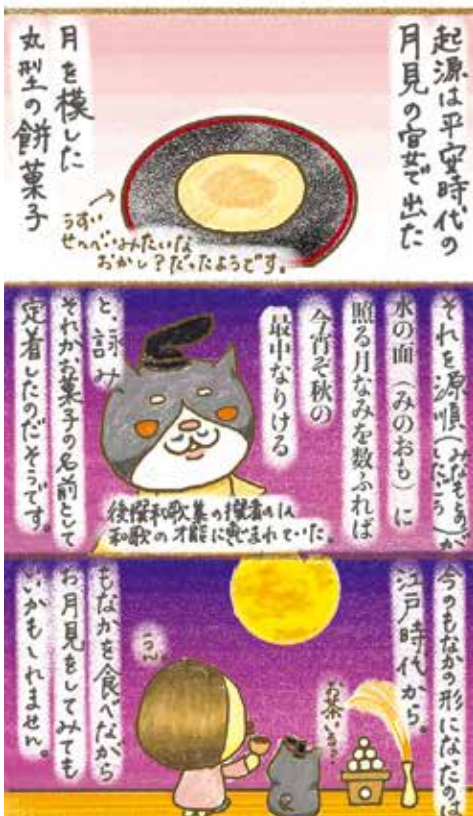 起源は平安時代の
月見の宴で出た
月を模した
丸型の餅菓子
うすい
せんべいみたいな
おかし?だったようです。
それを源順(みなもとの
したごう)が
水の面(みのおも)に
照る月なみを数ふれば
今宵ぞ秋の
最中なりける
と、詠み
それがお菓子の名前として
定着したのだそうです。
後撰和歌集の撰者の1人
和歌の才能に恵まれていた。
今のもなかの形になったのは
江戸時代から。
お茶いる?
うん。
もなかを食べながら
お月見をしてみても
いいかもしれません。